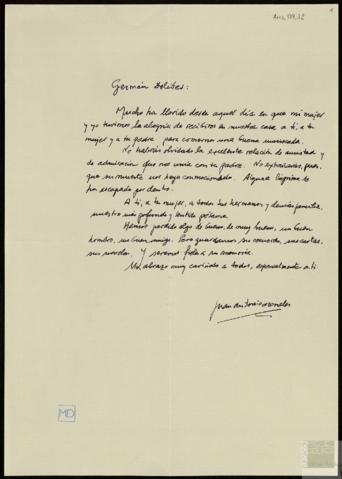 Germán Delibes:
Mucho ha llovido desde aquel día en que mi mujer
y yo tuvimos la alegría de recibiros en nuestra casa a ti, a tu
mujer y a tu padre para comernos una buena
No habrás olvidado la excelente relación de amistad y
de admiración que nos unía con tu padre. No extrañarás, pues,
que su muerte nos haya conmocionado. Alguna lágrima se
ha escapado por dentro.
A ti, a tu mujer, a todos tus hermanos y demás familia,
nuestro más profundo y sentido pésame.
Hemos perdido algo de bueno, de muy bueno, un buen
hombre, un buen amigo. Pero guardamos su recuerdo, sus cartas,
sus novelas. Y seremos fieles a su memoria.
Un abrazo muy cariñoso a todos, especialmente a ti.
Juan Antonio
MD